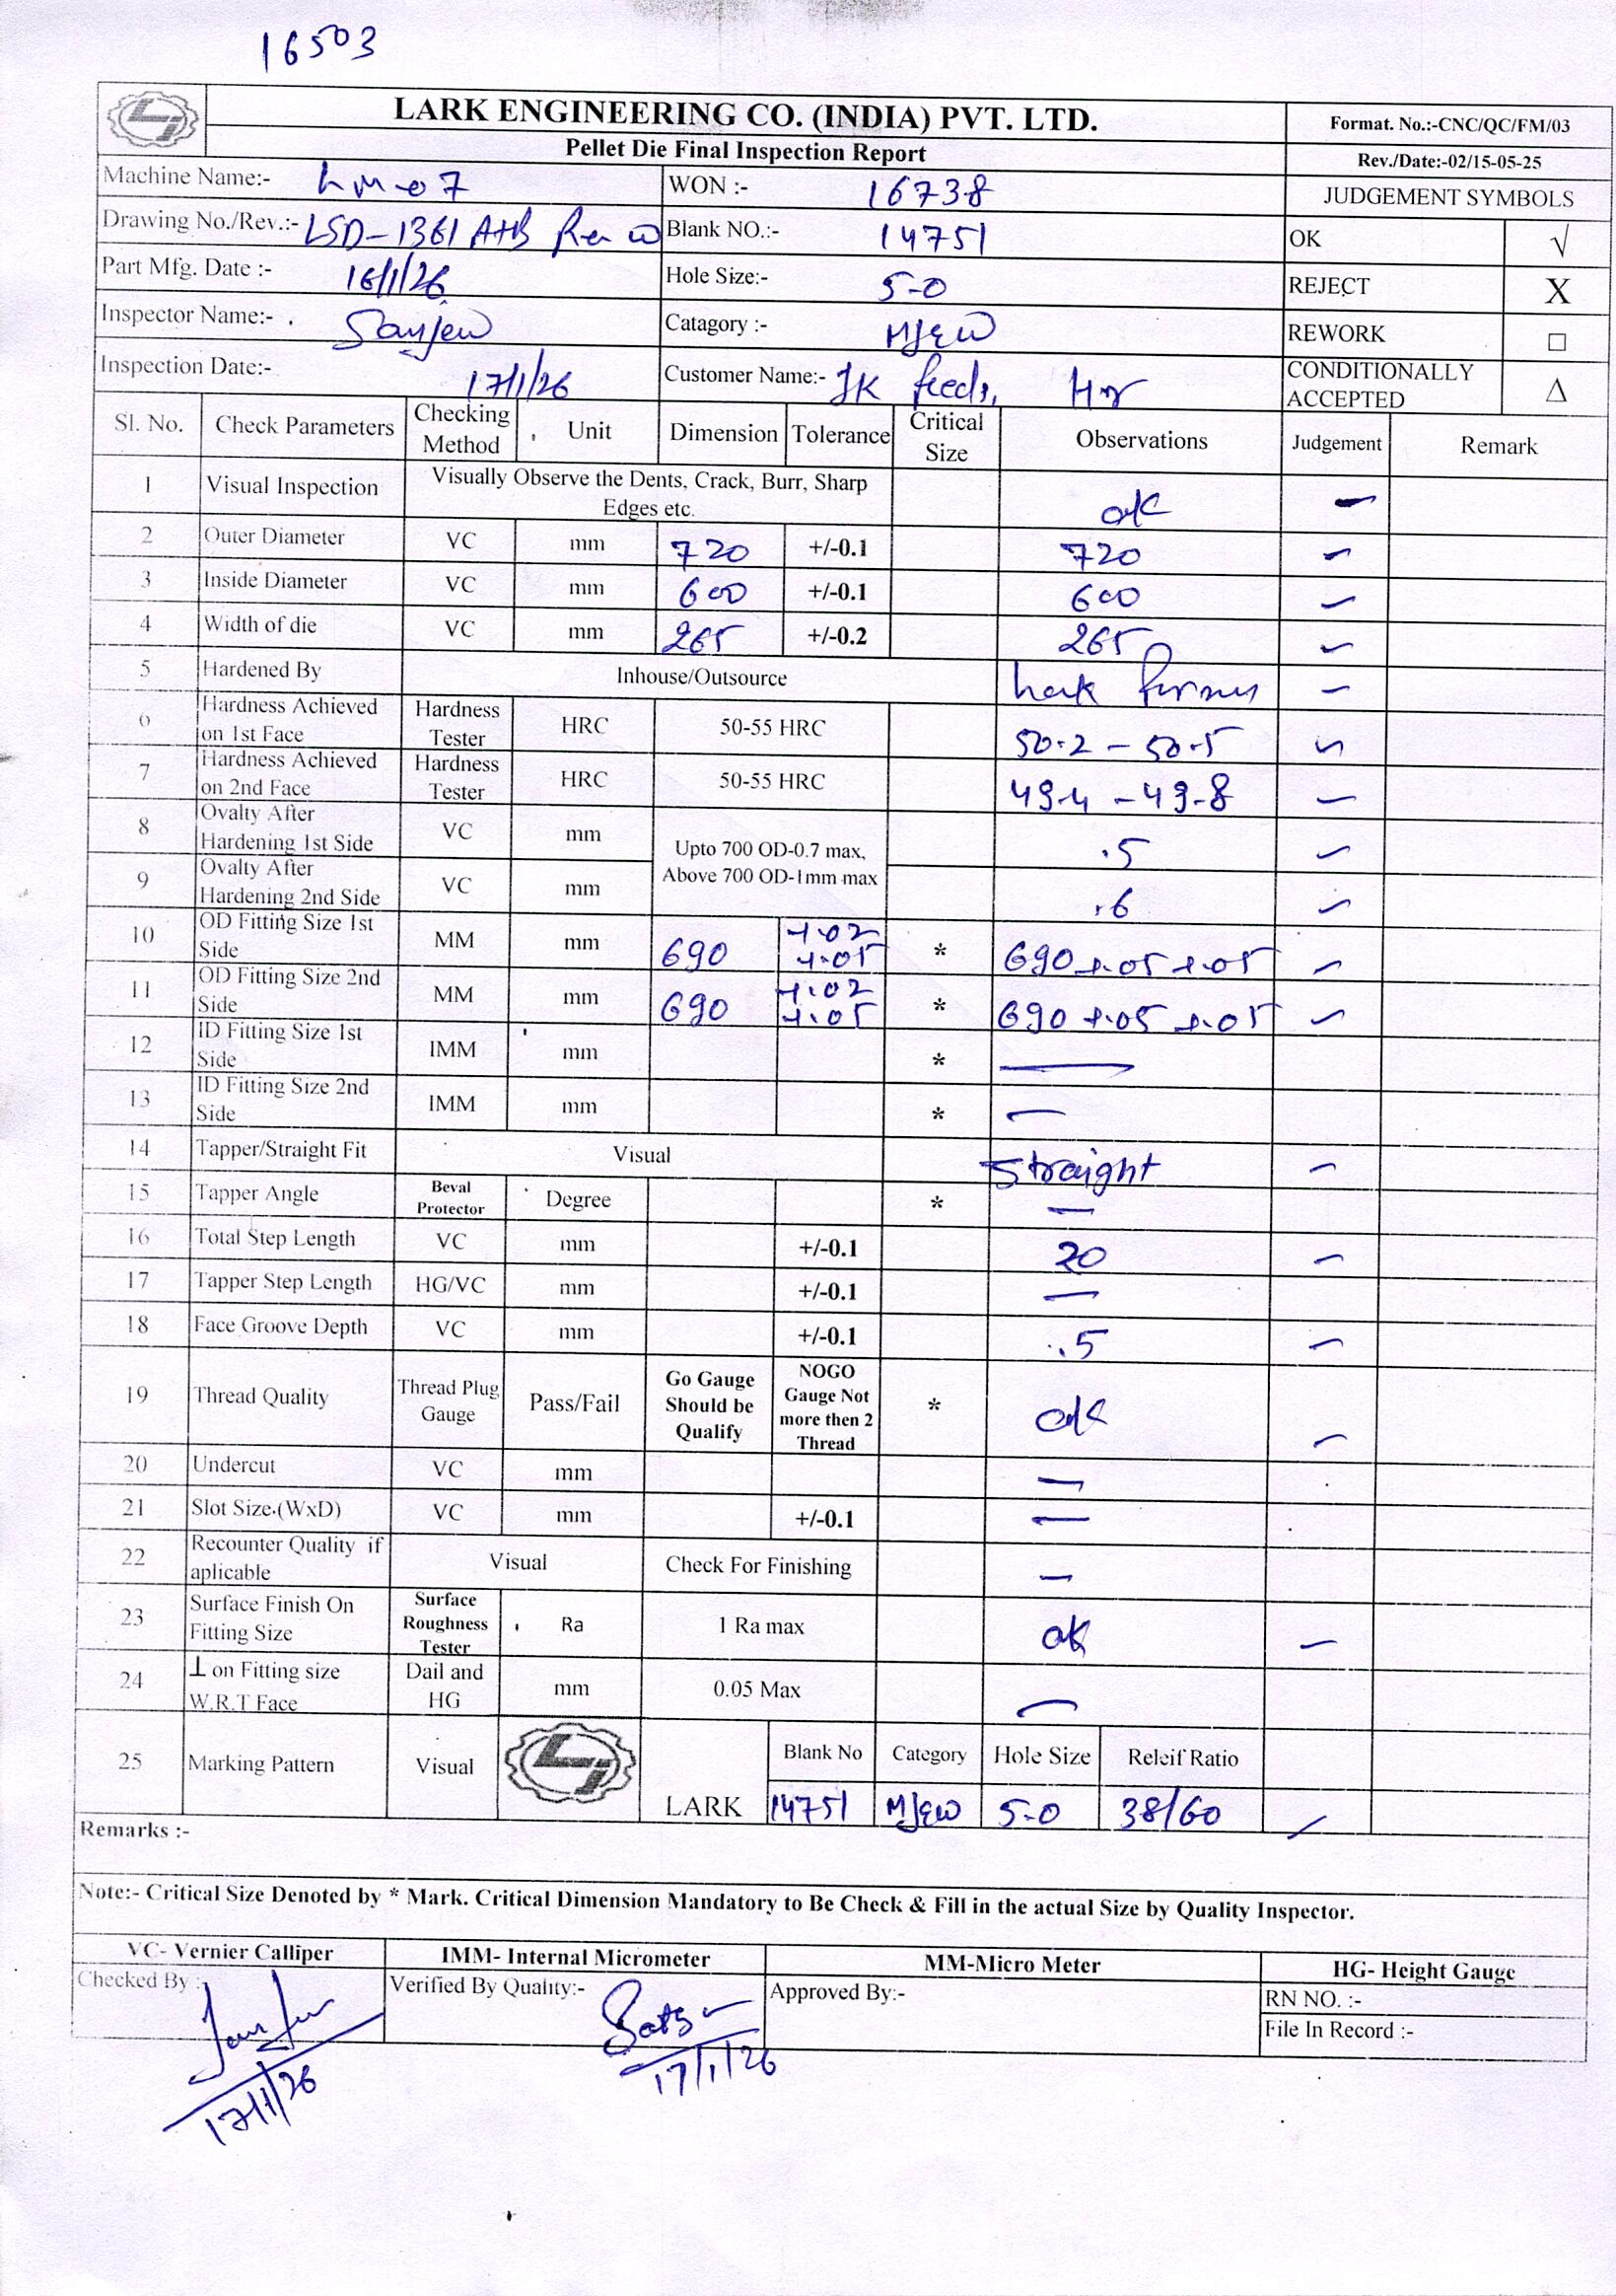 16503
LARK ENGINEERING CO. (INDIA) PVT. LTD.
Format. No.:-CNC/QC/FM/03
Pellet Die Final Inspection Report
Rev./Date:-02/15-05-25
Machine Name:- LM-07 WON :- 16738 JUDGEMENT SYMBOLS
Drawing No./Rev.:- LSD-1361 A+B Rev Blank NO.:- 14751 OK √
Part Mfg. Date :- 16/1/26 Hole Size:- 5-0 REJECT X
Inspector Name:- Sanjeev Catagory :- REWORK □
Inspection Date:- 17/1/26 Customer Name:- JK feeds, Hr CONDITIONALLY ACCEPTED Δ
Sl. No. Check Parameters Checking Method Unit Dimension Tolerance Critical Size Observations Judgement Remark
1 Visual Inspection Visually Observe the Dents, Crack, Burr, Sharp Edges etc. ok
2 Outer Diameter VC mm 720 +/-0.1 720
3 Inside Diameter VC mm 600 +/-0.1 600
4 Width of die VC mm 265 +/-0.2 265
5 Hardened By Inhouse/Outsource Lark
6 Hardness Achieved on 1st Face Hardness Tester HRC 50-55 HRC 50.2 - 50.5
7 Hardness Achieved on 2nd Face Hardness Tester HRC 50-55 HRC 49.4 - 49.8
8 Ovalty After Hardening 1st Side VC mm Upto 700 OD-0.7 max, Above 700 OD-1mm max .5
9 Ovalty After Hardening 2nd Side VC mm .6
10 OD Fitting Size 1st Side MM mm 690 +.02 +.05 * 690 +.05 +.05
11 OD Fitting Size 2nd Side MM mm 690 +.02 +.05 * 690 +.05 +.05
12 ID Fitting Size 1st Side IMM mm * —
13 ID Fitting Size 2nd Side IMM mm * —
14 Tapper/Straight Fit Visual Straight
15 Tapper Angle Beval Protector Degree * —
16 Total Step Length VC mm +/-0.1 20
17 Tapper Step Length HG/VC mm +/-0.1 —
18 Face Groove Depth VC mm +/-0.1 .5
19 Thread Quality Thread Plug Gauge Pass/Fail Go Gauge Should be Qualify NOGO Gauge Not more then 2 Thread * ok
20 Undercut VC mm —
21 Slot Size.(WxD) VC mm +/-0.1 —
22 Recounter Quality if aplicable Visual Check For Finishing —
23 Surface Finish On Fitting Size Surface Roughness Tester Ra 1 Ra max ok
24 ⊥ on Fitting size W.R.T Face Dail and HG mm 0.05 Max —
25 Marking Pattern Visual LARK Blank No Category Hole Size Releif Ratio
14751 5-0 38/60
Remarks :-
Note:- Critical Size Denoted by * Mark. Critical Dimension Mandatory to Be Check & Fill in the actual Size by Quality Inspector.
VC- Vernier Calliper IMM- Internal Micrometer MM-Micro Meter HG- Height Gauge
Checked By :- Verified By Quality:- Approved By:- RN NO. :-
File In Record :-
17/1/26 17/1/26